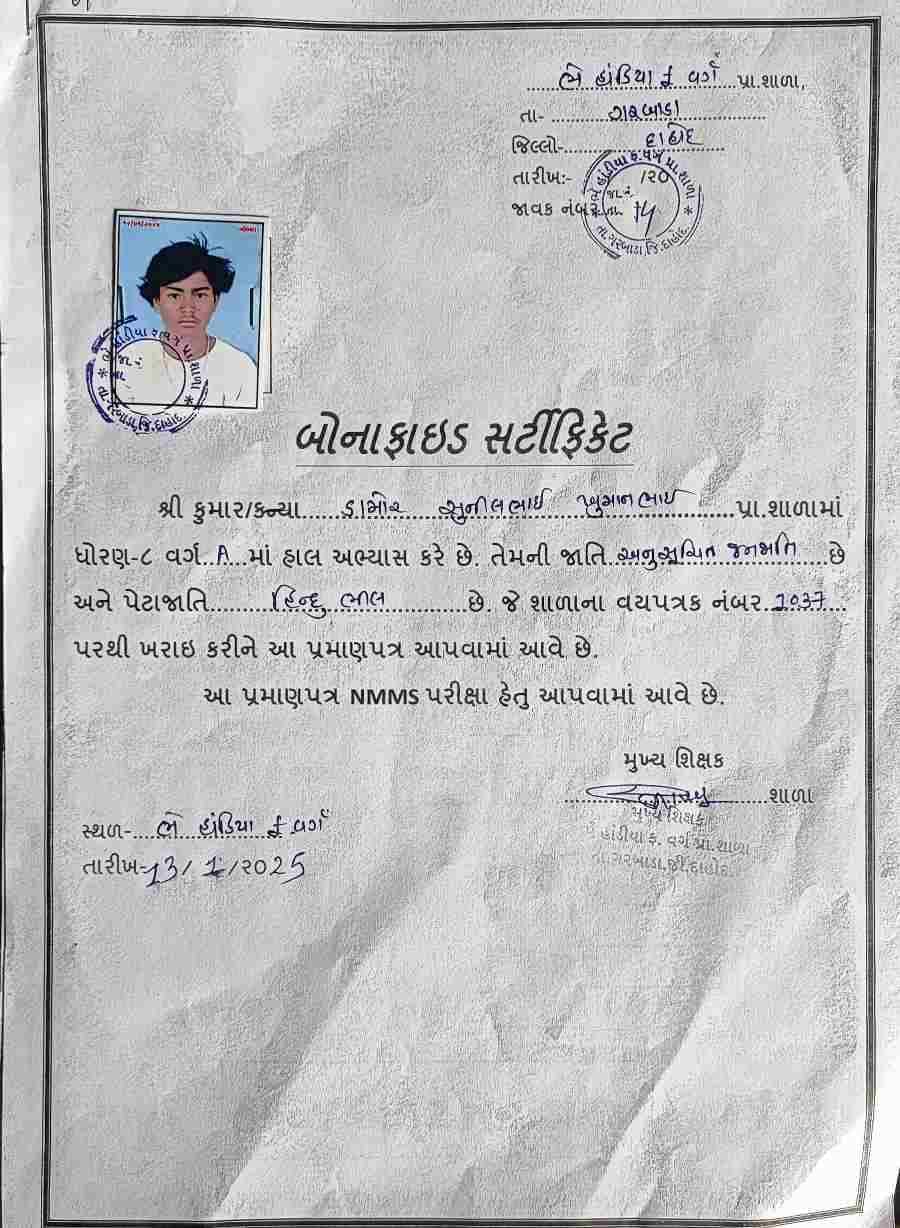 ભે હાંડિયા ફ વર્ગ પ્રા.શાળા,
તા- ગરબાડા
જિલ્લો- દાહોદ
તારીખ:- /૨૦
જાવક નંબર
જા. નં.
તા.
તા.ગરબાડા,જિ.દાહોદ
બોનાફાઇડ સર્ટીફિકેટ
શ્રી કુમાર/કન્યા ડામોર સુનીલભાઈ ખુમાનભાઈ પ્રા.શાળામાં
ધોરણ-૮ વર્ગ A માં હાલ અભ્યાસ કરે છે. તેમની જાતિ અનુસૂચિત જનજાતિ છે
અને પેટાજાતિ હિન્દુ ભીલ છે. જે શાળાના વયપત્રક નંબર 1037
પરથી ખરાઇ કરીને આ પ્રમાણપત્ર આપવામાં આવે છે.
આ પ્રમાણપત્ર NMMS પરીક્ષા હેતુ આપવામાં આવે છે.
મુખ્ય શિક્ષક
શાળા
મુખ્ય શિક્ષક
હાંડીયા ફ. વર્ગ પ્રા.શાળા
તા.ગરબાડા,જી.દાહોદ
સ્થળ- ભે હાંડિયા ફ વર્ગ
તારીખ- 13/1/૨૦25